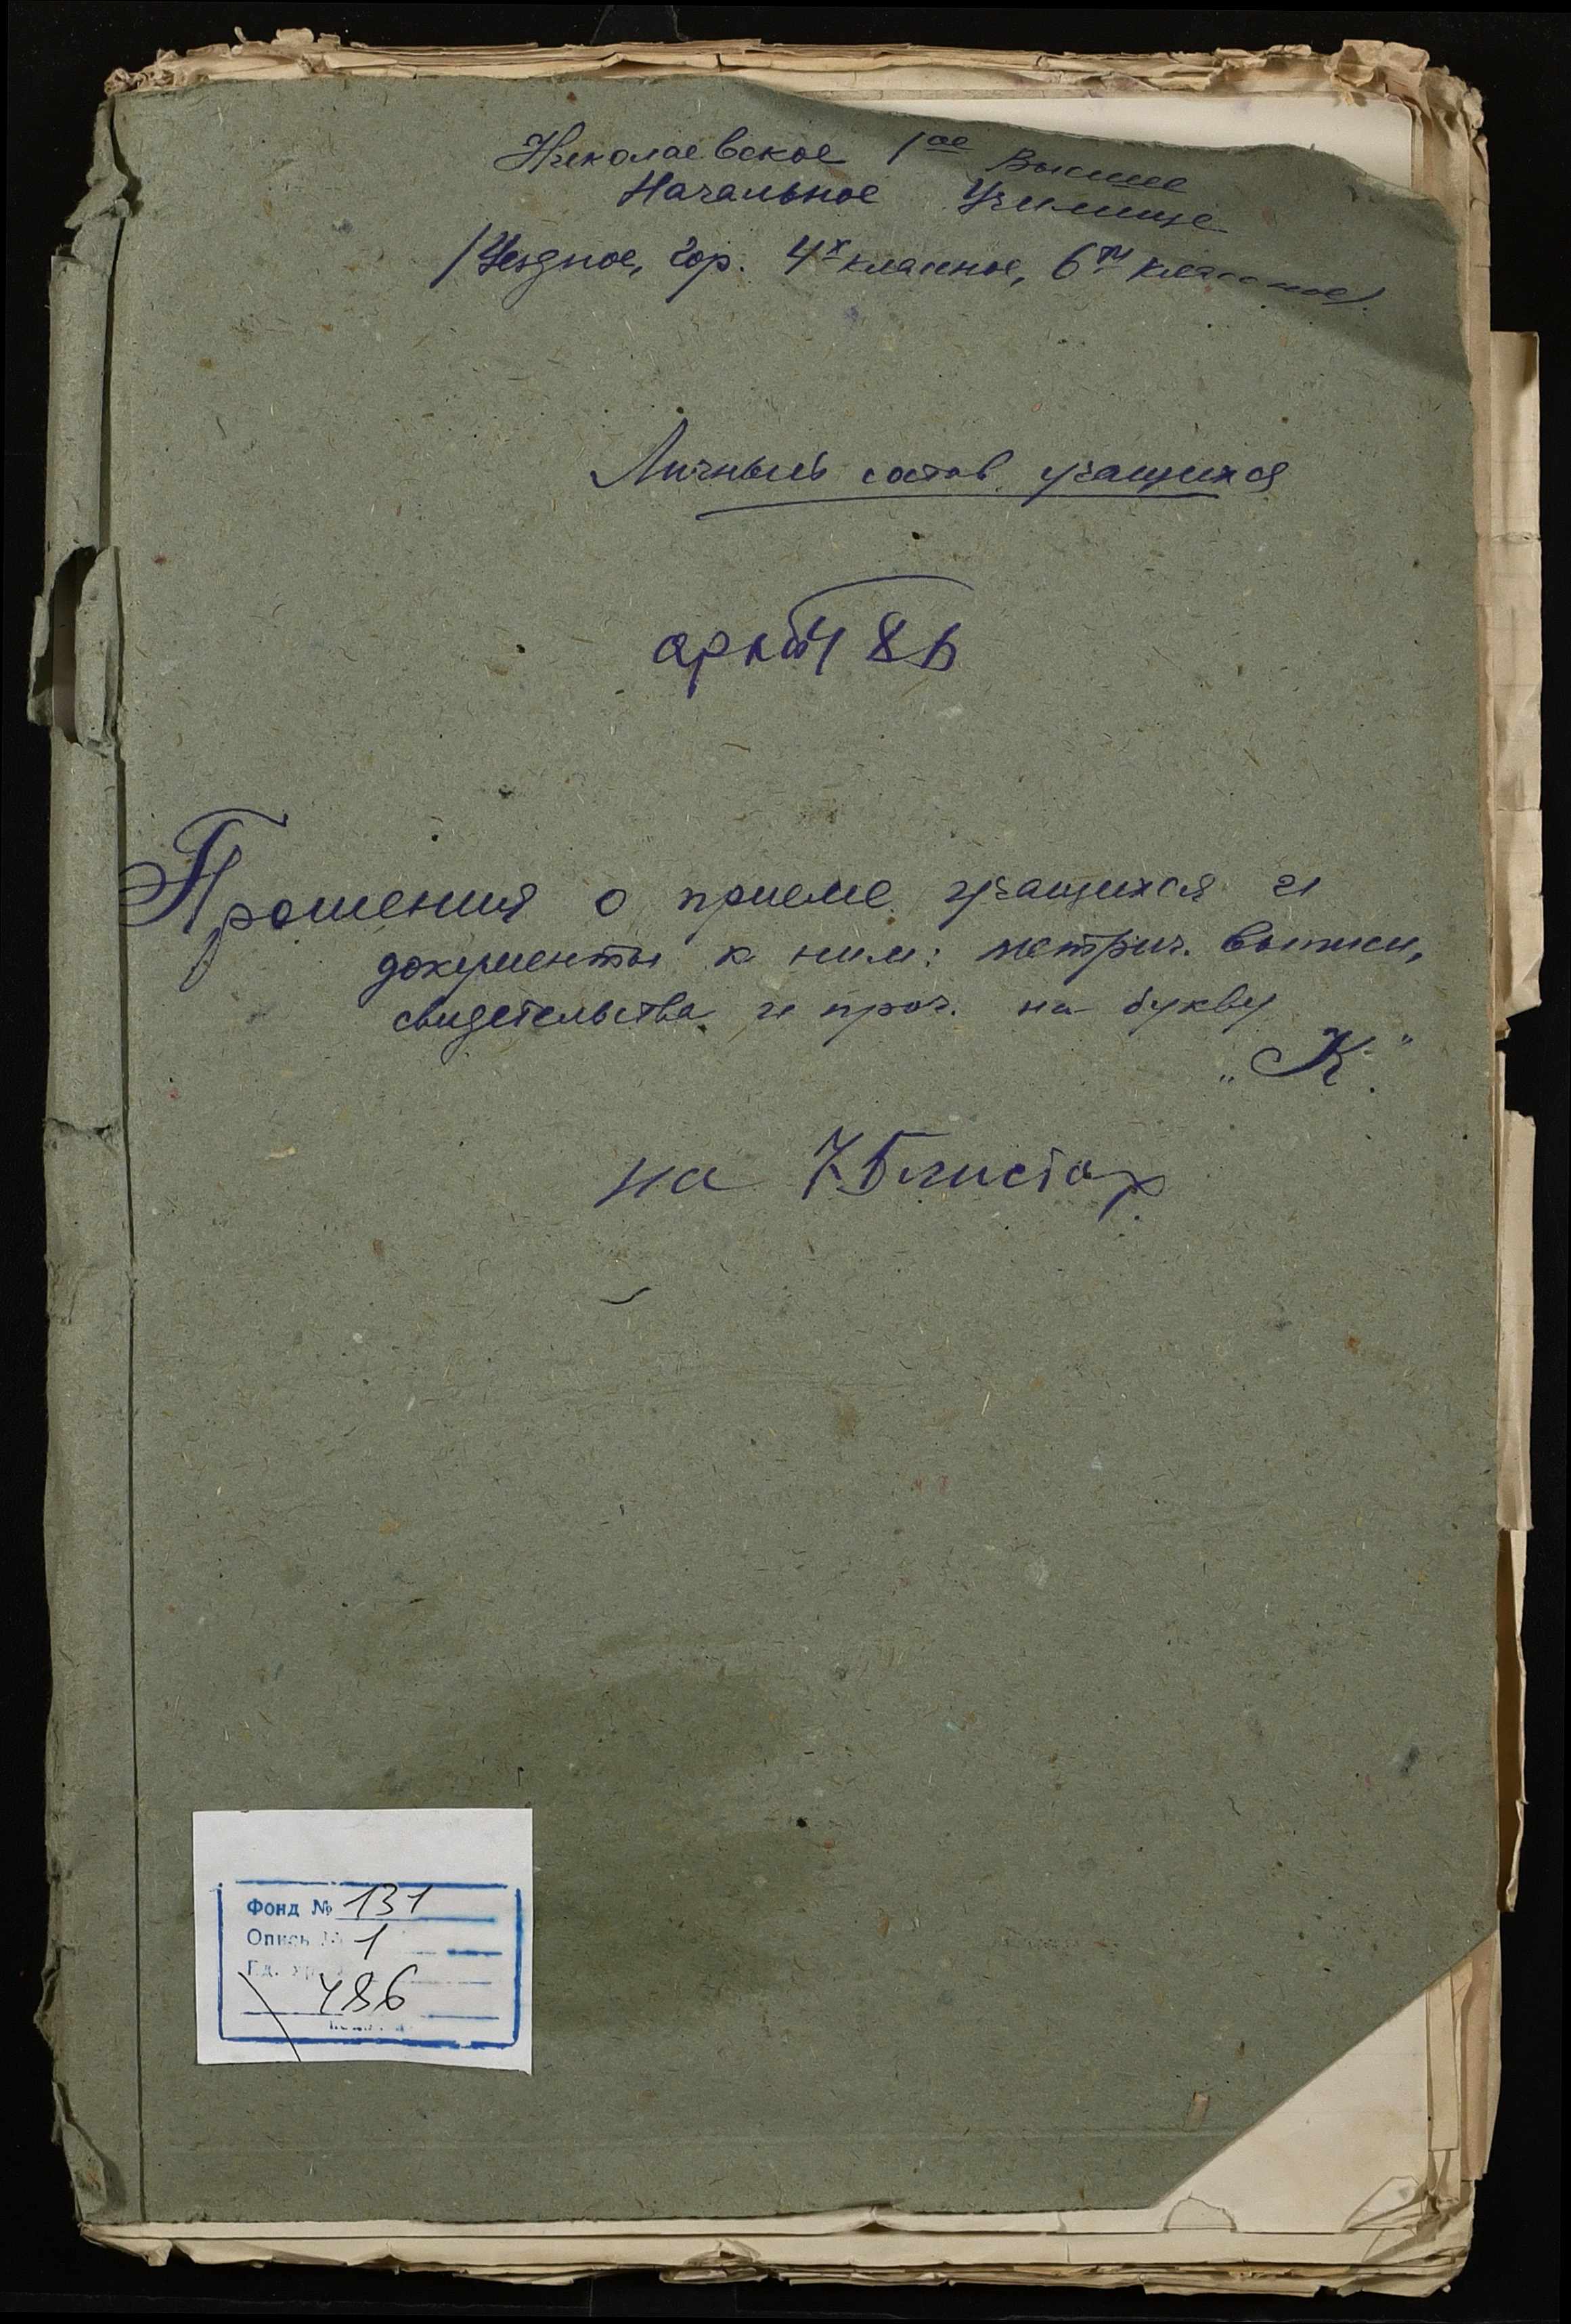 Николаевское 1ое Высшее
Начальное Училище
/Уездное, Гор. 4х классное, 6ти классное/.
Личный состав учащихся
арх № 486
Прошения о приеме учащихся и
документы к ним: метрич. выписи,
свидетельства и проч. на букву
„К."
на листах
Фонд № 131
Опись № 1
Ед. хр.
486